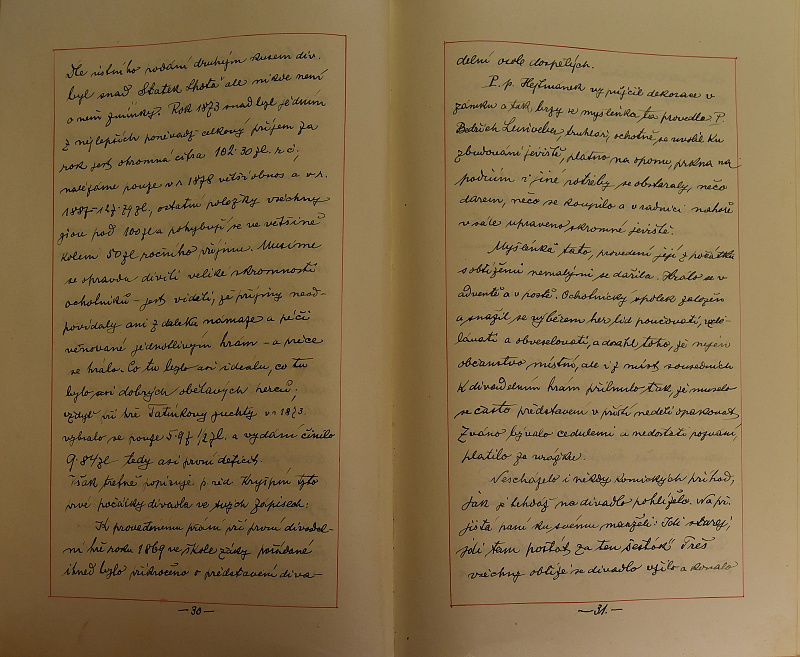 Dle ústního podání druhým kusem div.
byl snad "Statek Lhota" ale nikde není
o něm zmínky. Rok 1873 snad byl jedním
z nejlepších poněvadž celkový příjem za
rok jest ohromná cifra 182·30 zl. r. č.,
nalézáme pouze v r. 1878 větší obnos a v r.
1887-127·79 zl, ostatní položky všechny
jsou pod 100 zl a pohybují se ve většině
kolem 50 zl ročního příjmu. Musíme
se opravdu diviti veliké skromnosti
ochotníků - jest viděti, že příjmy neod-
povídaly ani z daleka námaze a péči
věnované jednotlivým hrám - a přece
se hrálo. Co tu bylo asi idealu, co tu
bylo asi dobrých obětavých herců,
vždyť při hře Tatínkovy juchty v r. 1873.
vybralo se pouze 5·97 1/2 zl. a vydání činilo
9·84 zl - tedy asi první deficit.
Však trefně popisuje p. řed. Kryšpín tyto
prvé počátky divadla ve svých zápiscích:
K provedenému přání při první divadel-
ní hře roku 1869 ve škole žáky pořádané
ihned bylo přikročeno o představení diva-
- 30 -
delní osob dospělých.
P. p. Hejtmánek vypůjčil dekorace v
zámku a tak, brzy se myšlénka ta provedla. P.
Bedřich truhlář, ochotně se uvolil ku
zbudování jeviště, plátno na oponu, prkna na
podium i jiné potřeby se obstaraly, něco
darem, něco se koupilo a v radnici nahoře
v sále upraveno skromné jeviště.
Myšlénka tato, provedení její z počátku
s obtížemi nemalými se dařila. Hrálo se v
adventě a v postě. Ochotnický spolek založen
a snažil se výběrem her lid poučovati, vzdě-
lávati a obveselovati, a dosáhl toho, že nejen
občanstvo místní, ale i z míst sousedních
k divadelním hrám přilnulo tak, že muselo
se často představení v příští neděli opakovat.
Zváno bývalo cedulemi a nedostati pozvání,
platilo za urážku.
Nescházelo i někdy komických příhod,
jak se tehdáž na divadlo pohlíželo. Na př.
jistá paní ku svému manželi: Jdi starej,
jdi tam postát za ten šesťák! Přes
všechny obtíže se divadlo vžilo a konalo
- 31. -